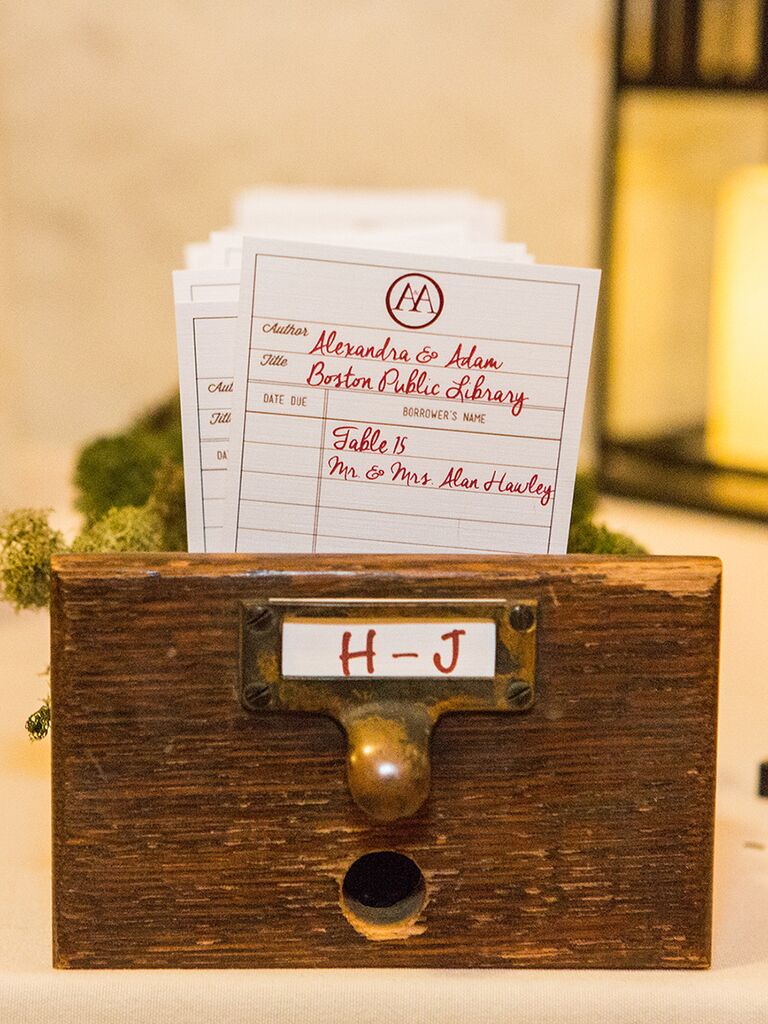 A&A
Author Alexandra & Adam
Title Boston Public Library
DATE DUE BORROWER'S NAME
Table 15
Mr. & Mrs. Alan Hawley
Aut
Titl
DA
H-J